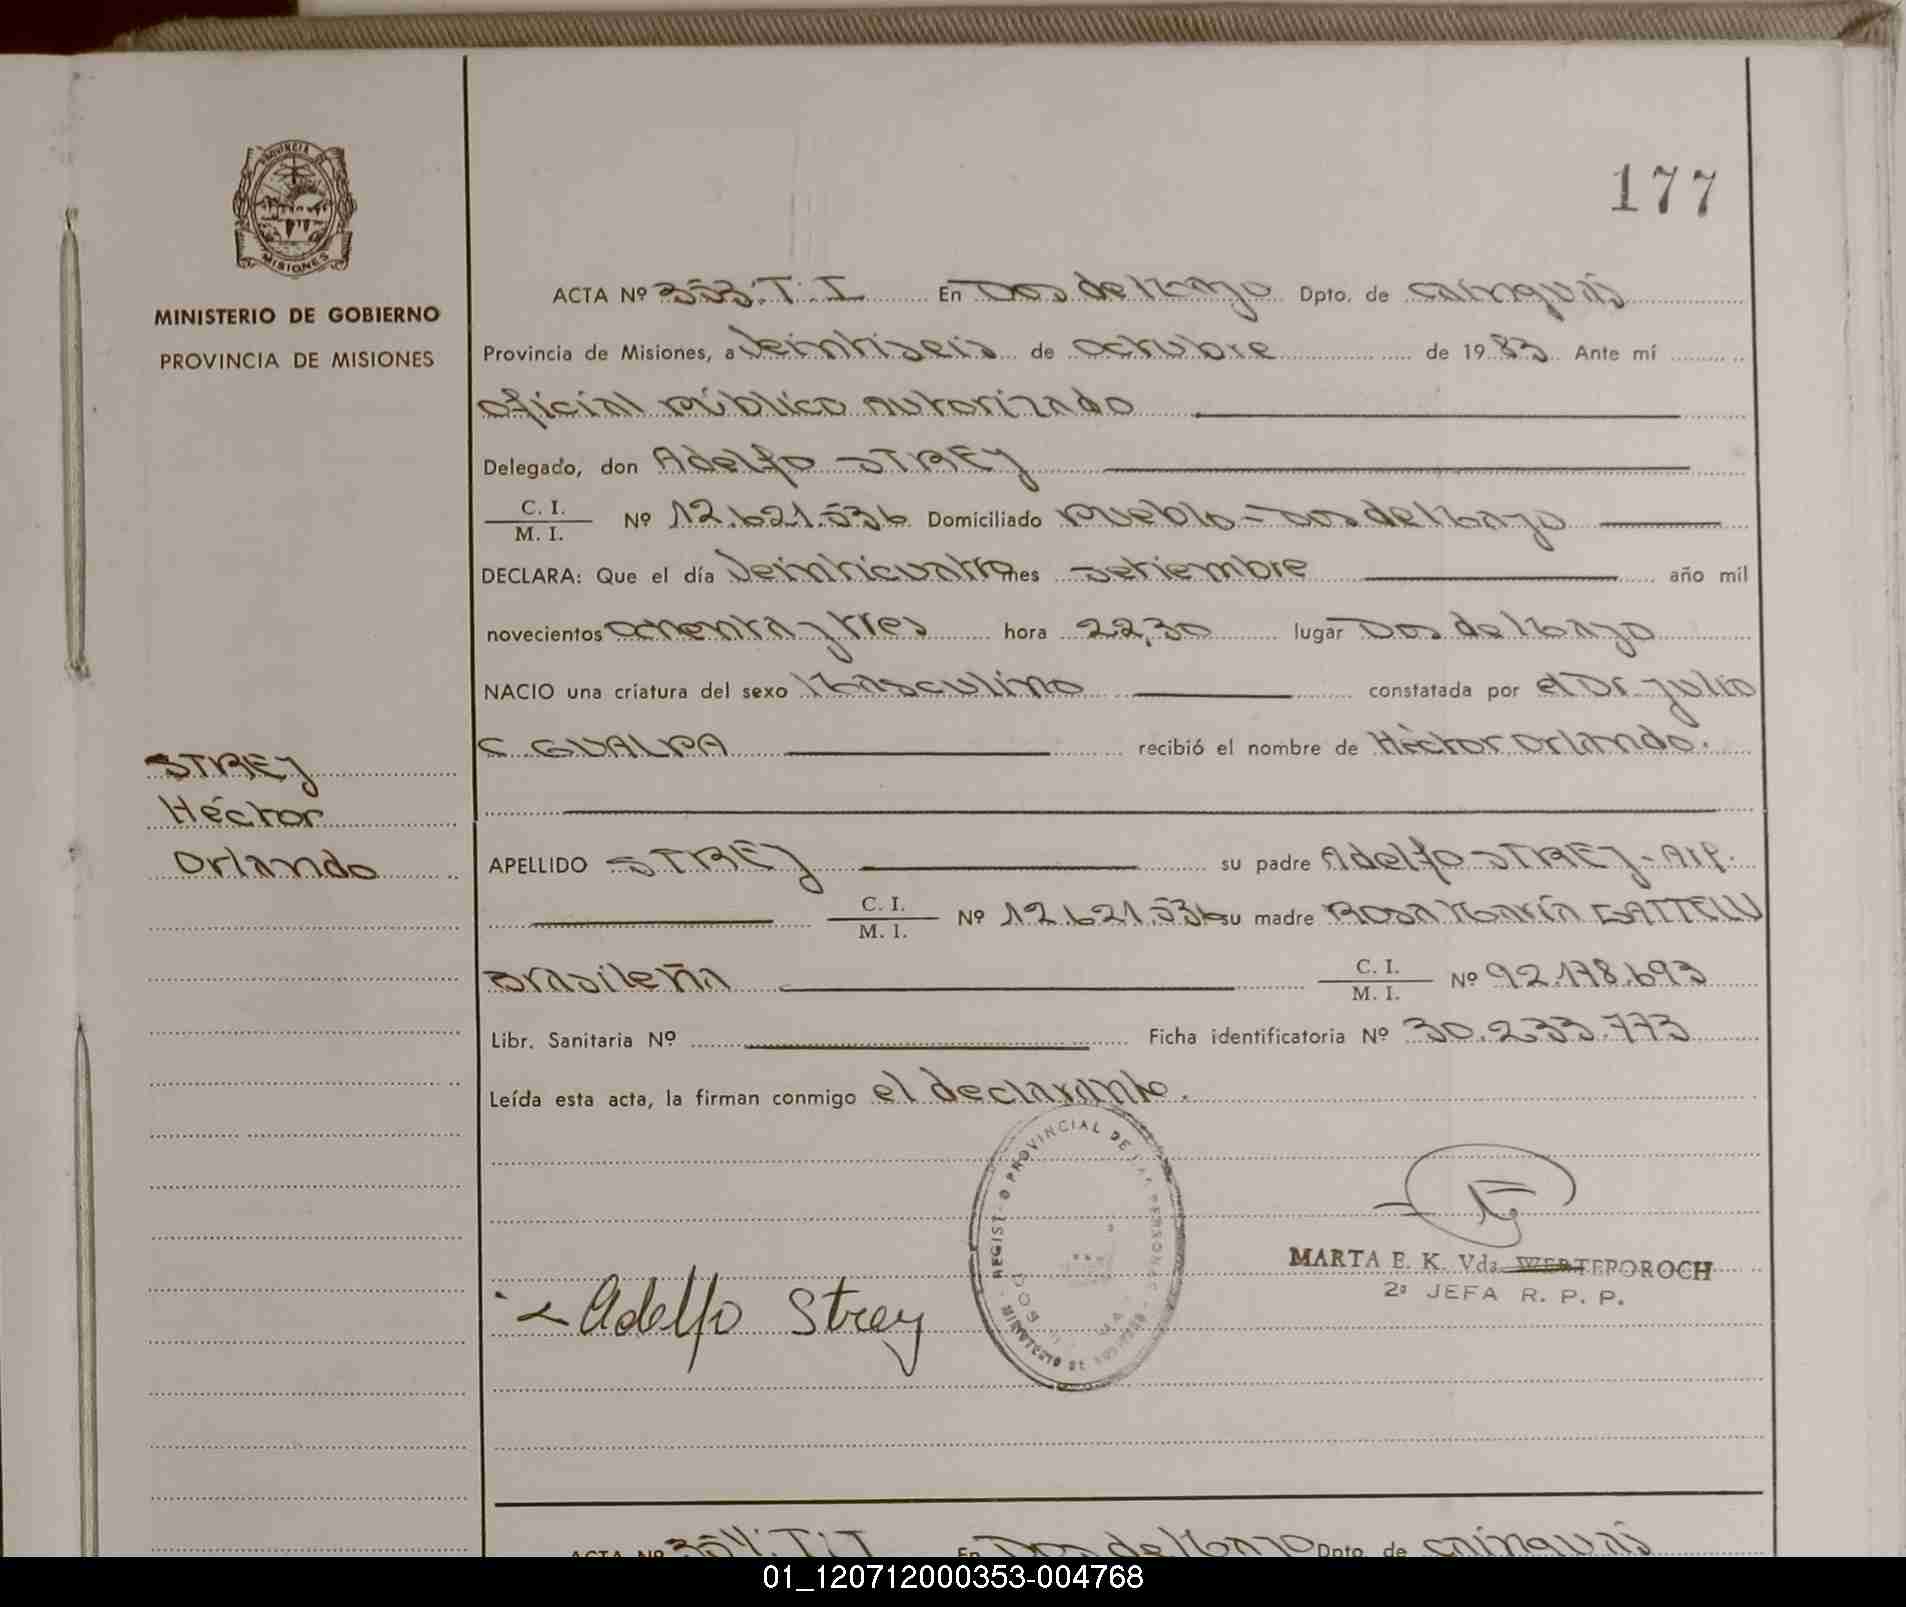 PROVINCIA DE
MISIONES
MINISTERIO DE GOBIERNO
PROVINCIA DE MISIONES
177
ACTA Nº 353.T.I En Dos de Mayo Dpto. de Cainguás
Provincia de Misiones, a veintiseis de octubre de 1983 Ante mí
oficial público autorizado
Delegado, don Adelfo STREY
C. I.
M. I. Nº 12.621.536 Domiciliado Pueblo - Dos de Mayo
DECLARA: Que el día veinticuatro mes setiembre año mil
novecientos ochenta y tres hora 22,30 lugar Dos de Mayo
NACIO una criatura del sexo Masculino constatada por el Dr. Julio
C GUALPA recibió el nombre de Héctor Orlando.
STREY
Héctor
Orlando
APELLIDO STREY su padre Adelfo STREY - Arg.
C. I.
M. I. Nº 12.621.536 su madre Rosa María
Brasileña C. I.
M. I. Nº 92.178.693
Libr. Sanitaria Nº Ficha identificatoria Nº 30.233.773
Leída esta acta, la firman conmigo el declarante.
REGIST O PROVINCIAL DE LAS PERSONAS
MINISTERIO DE
MARTA E. K. Vda WERTEPOROCH
2ª JEFA R. P. P.
Adelfo Strey
ACTA Nº 354.T.I En Dos de Mayo Dpto. de Cainguás
01_120712000353-004768